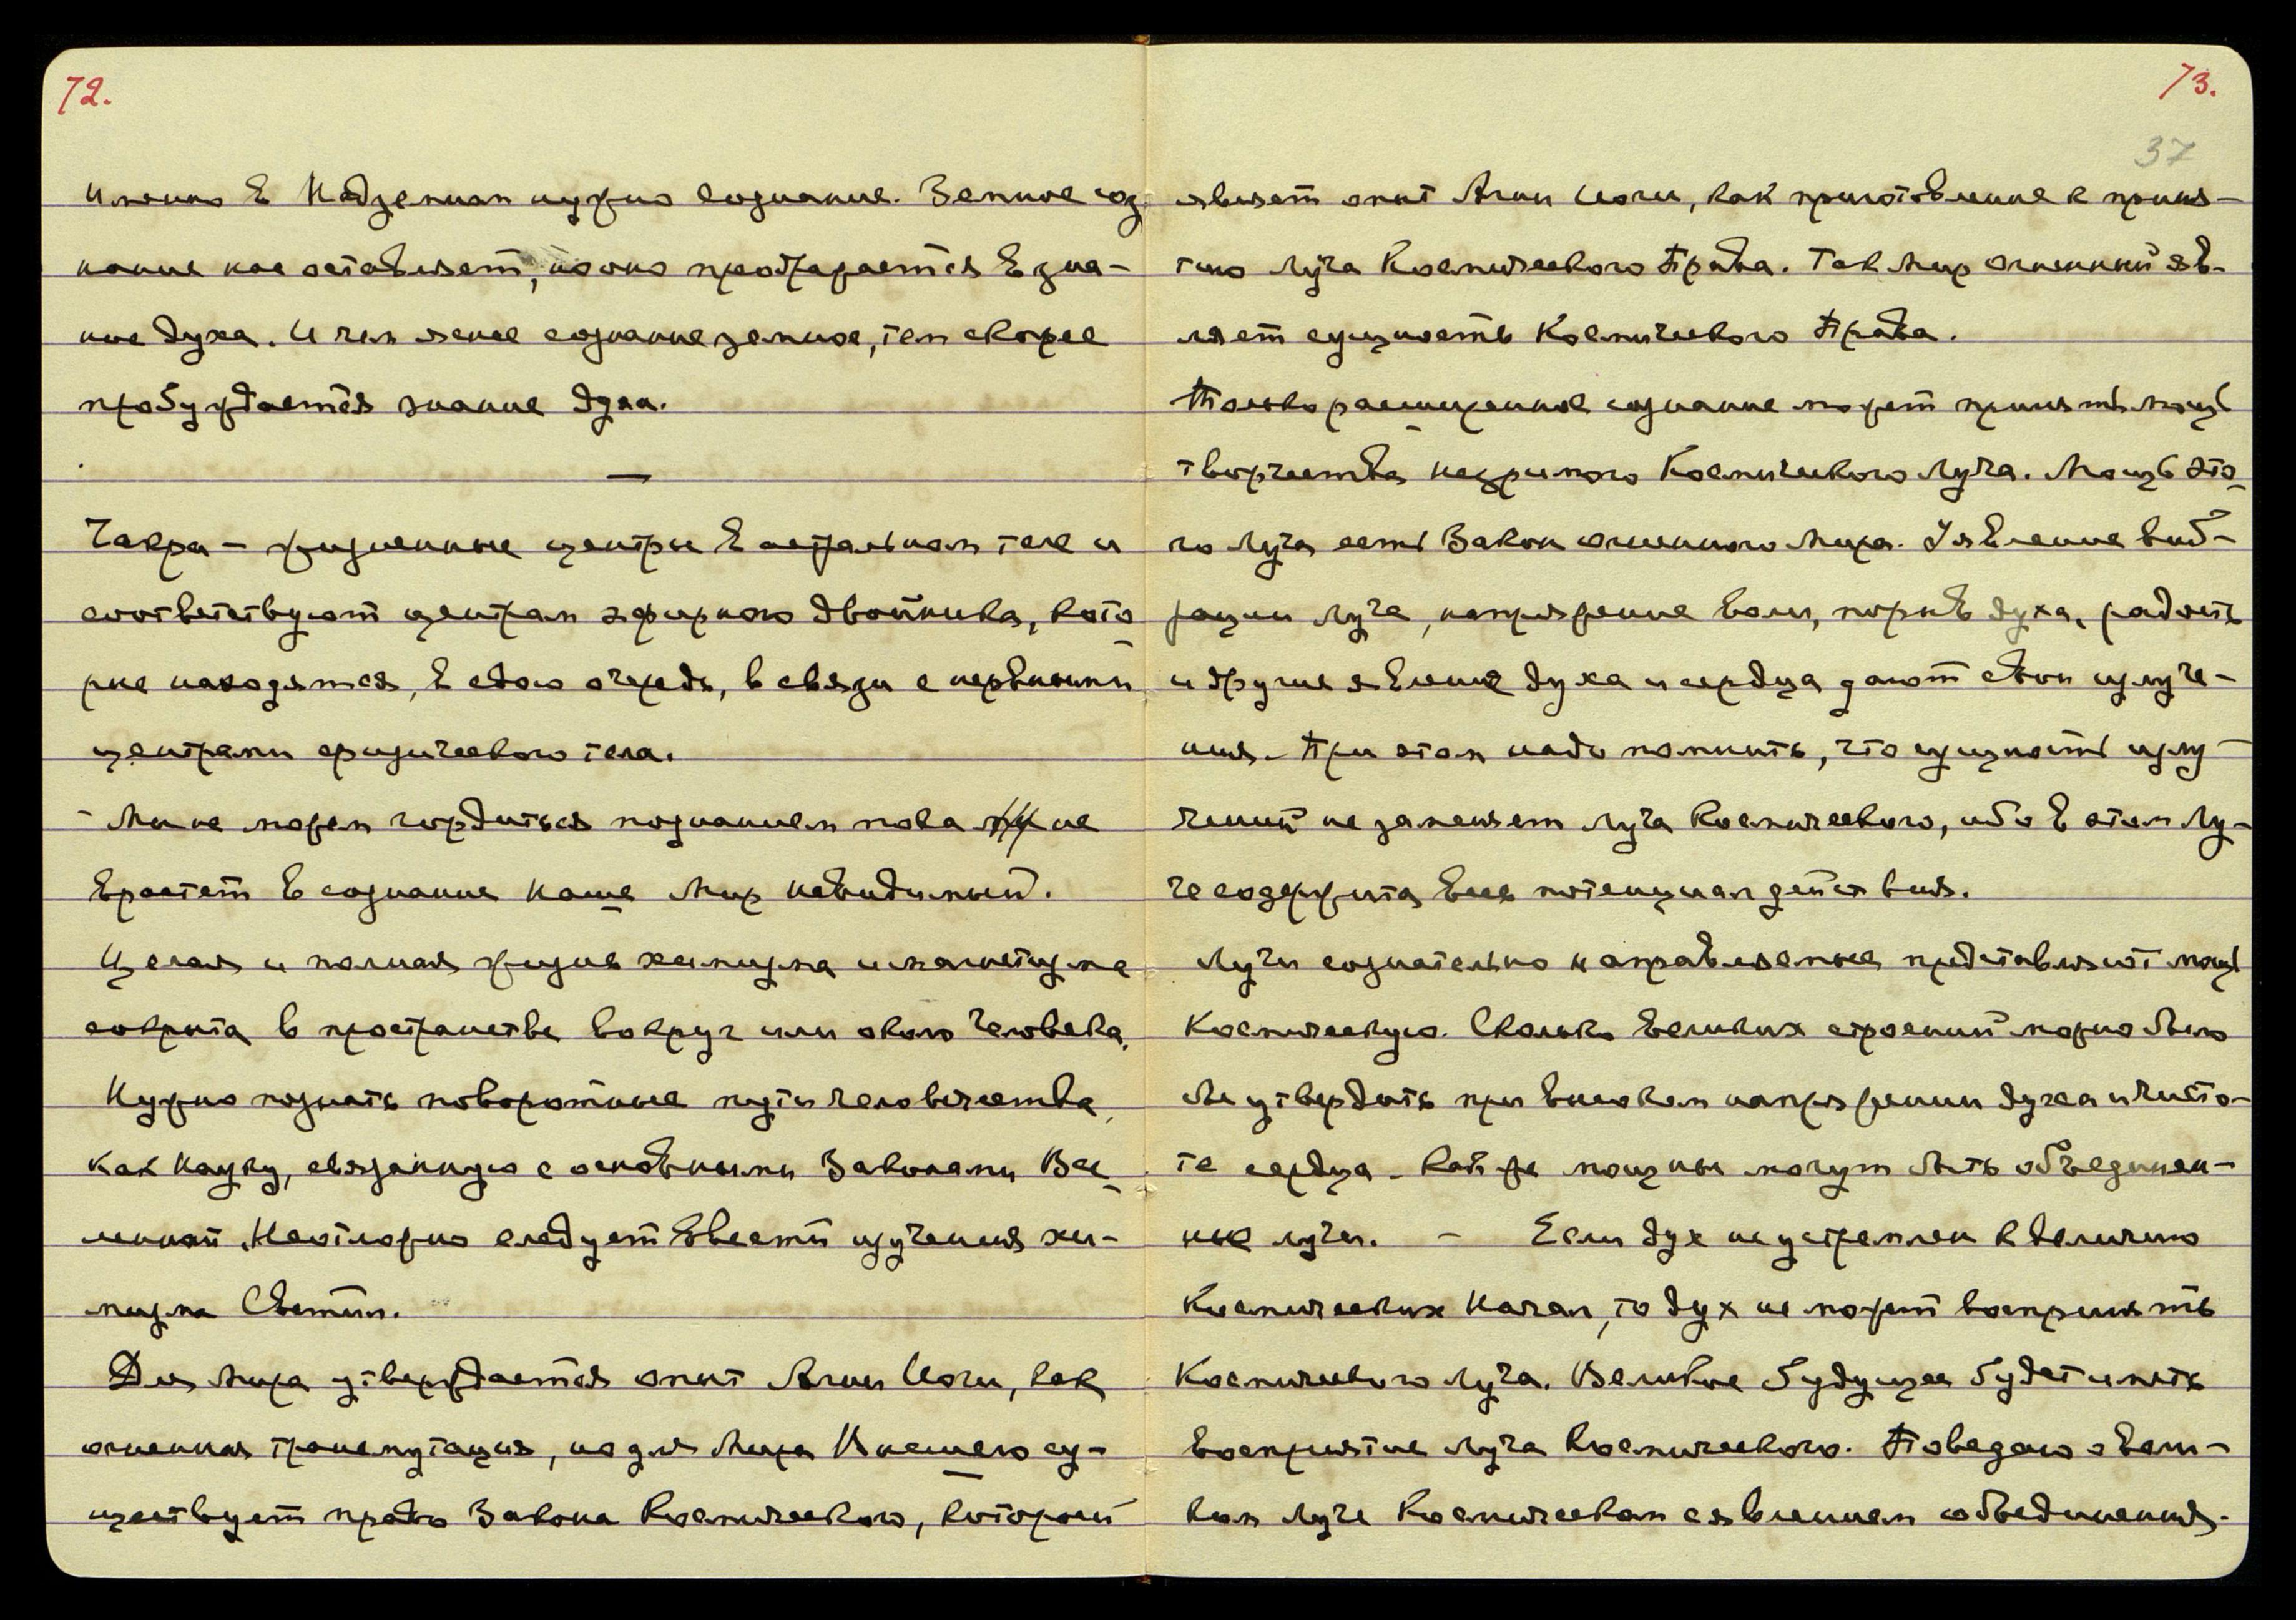 72.
Именно в Надземном нужно сознание. Земное соз
нание нас оставляет, но оно преображается в зна-
ние духа. И чем яснее сознание земное, тем скорее
пробуждается знание духа.
—
Чакра – жизненные центры в астральном теле и
соответствуют центрам эфирного двойника, кото
рые находятся, в свою очередь, в связи с нервными
центрами физического тела.
- Мы не можем гордиться познанием пока не
врастет в сознание наше Мир невидимый.
Целая и полная жизнь химизма и магнетизма
сокрыта в пространстве вокруг или около человека.
Нужно познать поворотные пути человечества,
как науку, связанную с основными Законами Все
ленной. Неотложно следует ввести изучения хи-
мизма Светил.
Для Мира утверждается опыт Агни Йоги, как
огненная трансмутация, но для Мира Высшего су-
ществует право Закона Космического, который
73.
37
являет опыт Агни Йоги, как приготовление к приня-
тию Луча Космического Права. Так Мир огненный яв-
ляет сущность Космического Права.
Только расширенное сознание может принять мощь
творчества незримого Космического Луча. Мощь это
го Луча есть Закон огненного Мира. Уявление виб-
рации Луча, напряжение воли, порыв духа, радость
и другие явления духа и сердца дают свои излуче-
ния. При этом надо помнить, что сущность излу-
чений не заменяет Луча Космического, ибо в этом Лу-
че содержится весь потенциал действия.
Лучи сознательно направляемые представляют мощь
Космическую. Сколько великих строений можно было
бы утвердить при высоком напряжении духа и чисто-
те сердца. Как же мощны могут быть объединен-
ные лучи. – Если дух не устремлен к величию
Космических Начал, то дух не может воспринять
Космического Луча. Великое будущее будет иметь
восприятие Луча Космического. Поведаю о вели-
ком Луче Космическом явлением объединения.